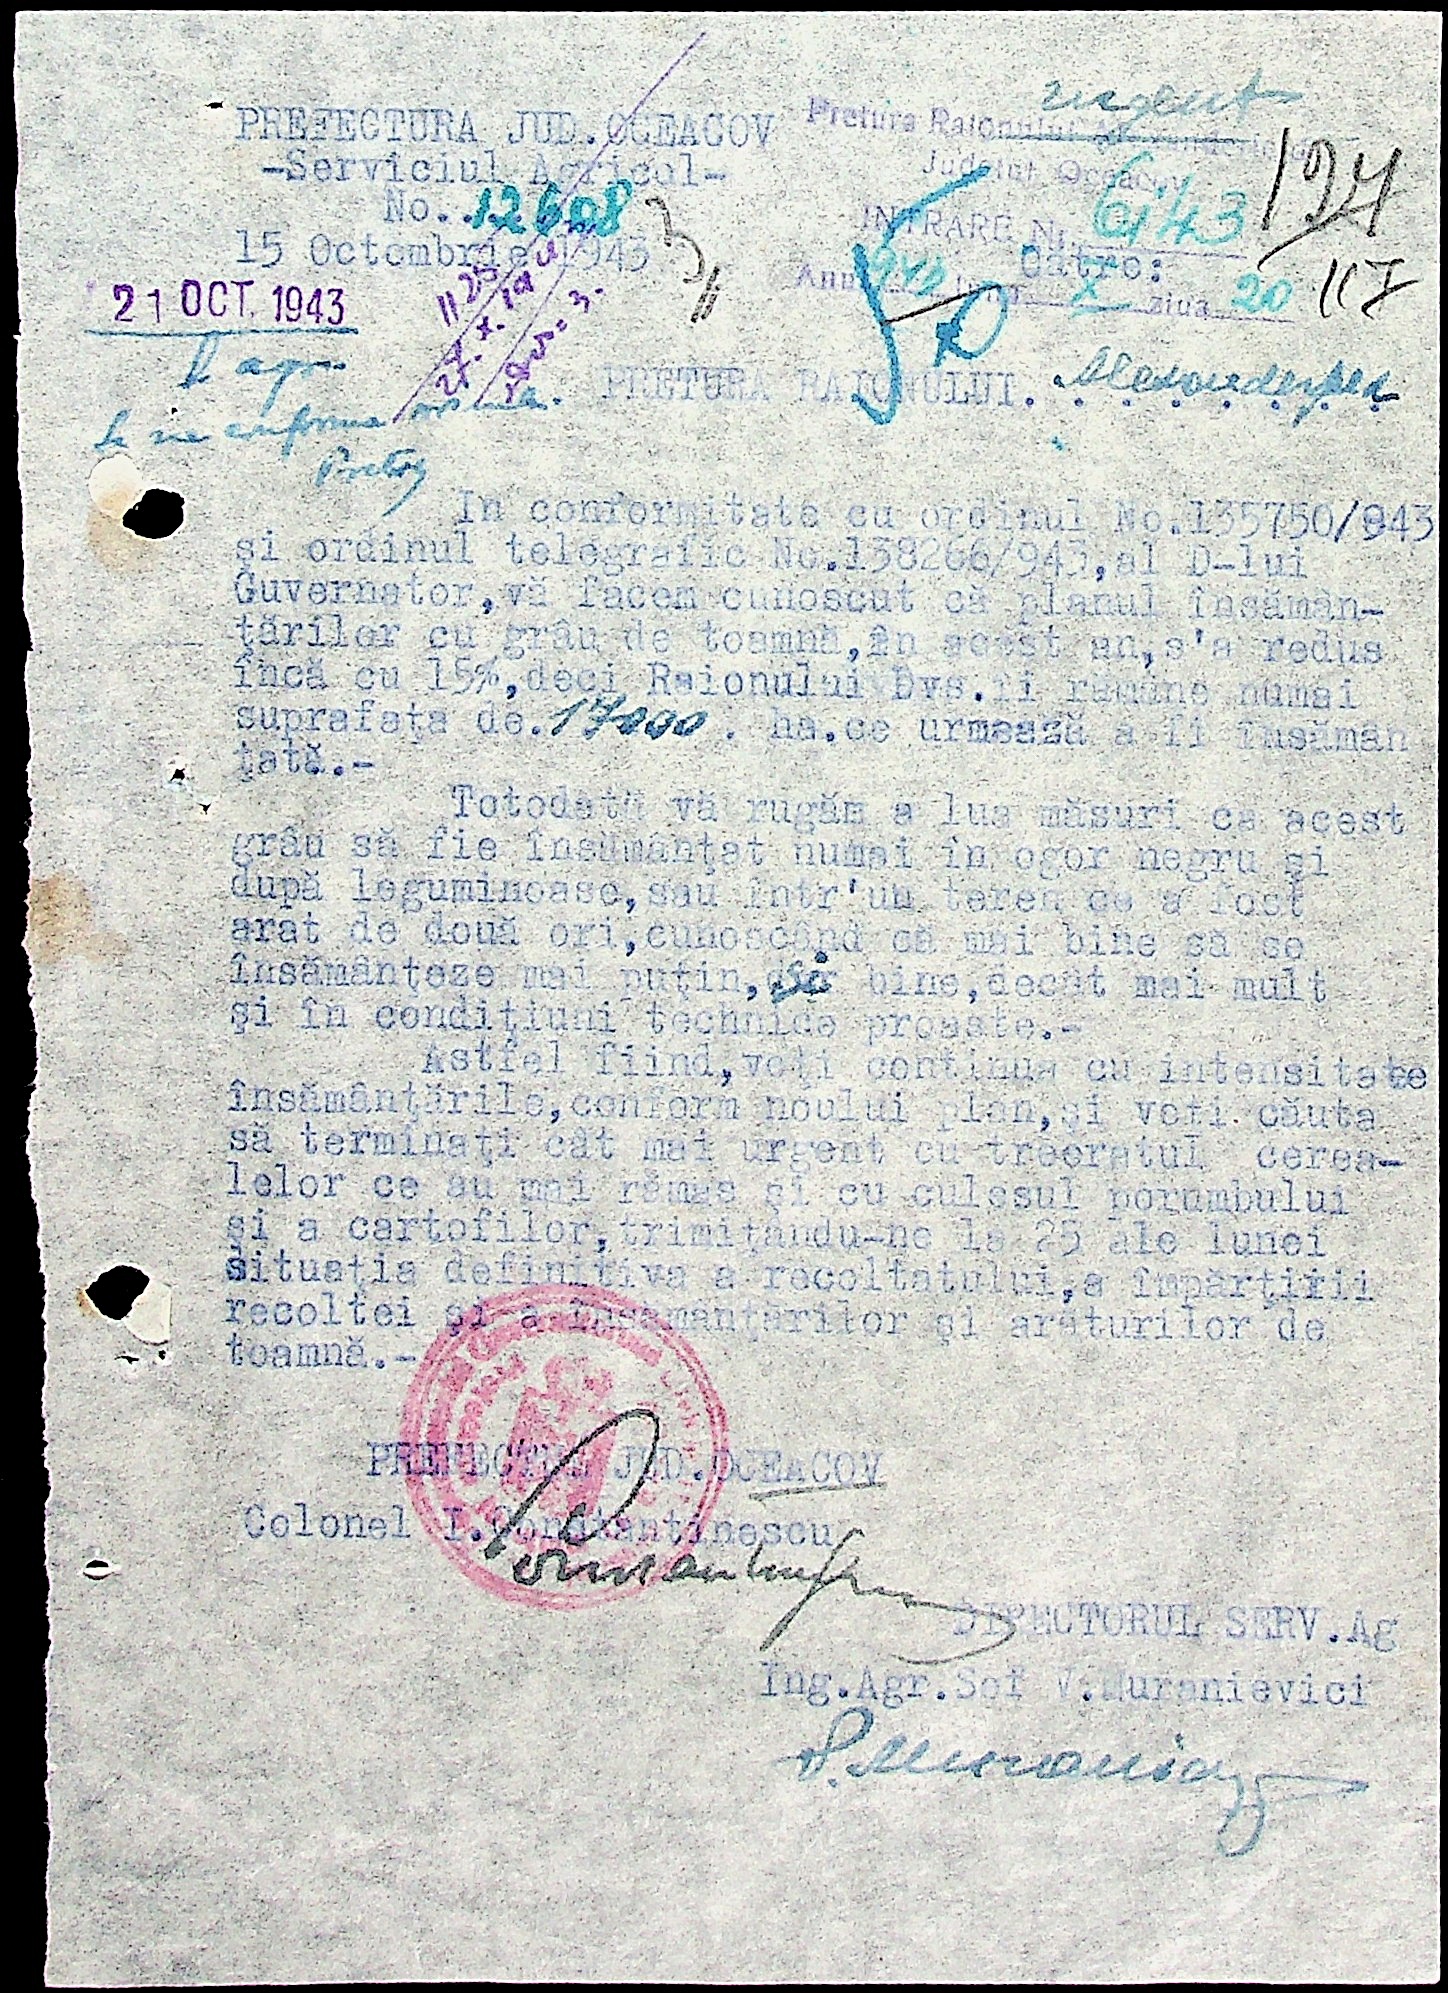 urgent
PREFECTURA JUD.OCEACOV
-Serviciul Agricol-
No. 12608
15 Octombrie 1943
Pretura Raionului
Judetul Oceacov
INTRARE Nr. 6143
Anul 943 luna X ziua 20
194
117
Către:
21 OCT. 1943
PRETURA RAIONULUI. Alexanderfeld
S. agr.
Se va conforma
Pretor
In conformitate cu ordinul No.135750/943
şi ordinul telegrafic No.138266/943,al D-lui
Guvernator,vă facem cunoscut că planul însămân-
ţărilor cu grâu de toamnă,în acest an,s'a redus
încă cu 15%,deci Raionului Dvs.îi rămâne numai
suprafaţa de.17000. ha.ce urmează a fi însămân
ţată.-
Totodată vă rugăm a lua măsuri ca acest
grâu să fie însămânţat numai în ogor negru şi
după leguminoase,sau într'un teren ce a fost
arat de două ori,cunoscând că mai bine să se
însămânţeze mai puţin, bine,decât mai mult
şi în condiţiuni technice proaste.-
Astfel fiind,veţi continua cu intensitate
însămânţările,conform noului plan,şi veti căuta
să terminaţi cât mai urgent cu treeratul cerea-
lelor ce au mai rămas şi cu culesul porumbului
şi a cartofilor,trimiţându-ne la 25 ale lunei
situaţia definitiva a recoltatului,a împărţirii
recoltei şi a însămanţărilor şi arăturilor de
toamnă.-
PREFECTUL JUD.OCEACOV
Colonel I.Constantinescu
DIRECTORUL SERV.Ag
Ing.Agr.Sef V.Muranievici